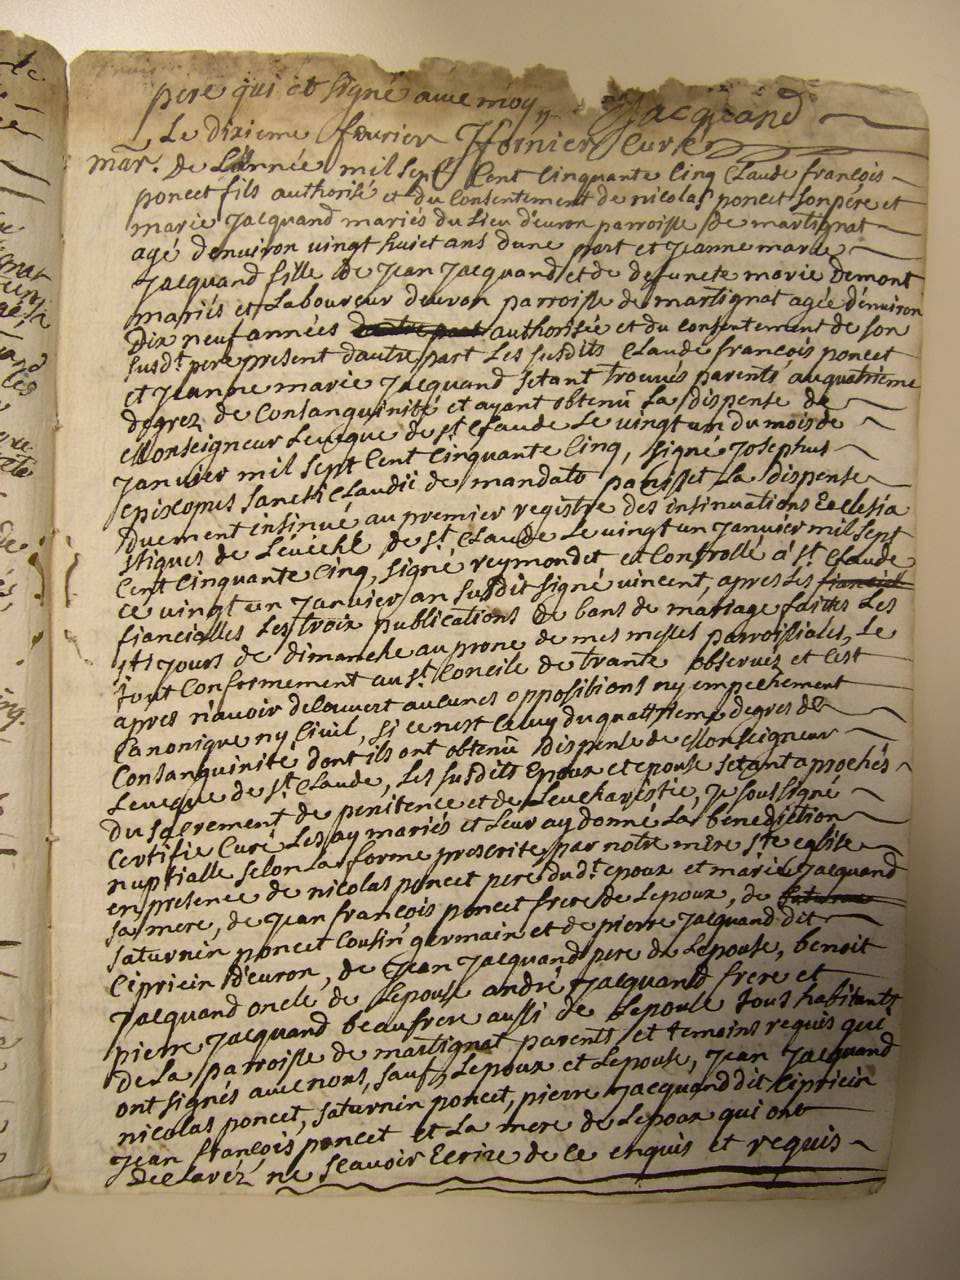 pere qui est signé avec moy Jacquand
Hornier Curé
Le dixieme fevrier
mar. de L'année mil sept Cent Cinquante Cinq Claude françois
poncet fils authorisé et du Consentement de nicolas poncet son pére et
marie Jacquand mariés du Lieu d'euron parroisse de martignat
agé denviron vingt huict ans dune part et Jeanne marie
Jacquand fille de Jean Jacquand et de defuncte marie Demont
mariés et Laboureur deuron parroisse de martignat agée d'environ
Dix neuf années dautre part authorisée et du consentement de son
susdt. pere present dautre part Les susdits Claude françois poncet
et Jeanne marie Jacquand setant trouvés parents au quatrieme
degrez de Consanguinité et ayant obtenu La dispense de
Monseigneur Leveque de St. Claude Le vingt un du mois de
Janvier mil sept Cent Cinquante Cinq, signé Josephus
Episcopus Sancti Claudii de mandato et La dispense
Duement insinué au premier registre des insinuations Ecclesia
stiques de L'évéché de St. Claude Le vingt un Janvier mil sept
Cent Cinquante Cinq, signé reymondet et Controllé à St. Claude
ce vingt un Janvier an susdit signé vincent, apres Les
fiancialles Les trois publications de bans de mariage faittes Les
jours de dimanche au prone de mes messes parroissiales, Le
tout Conformement au St. Concile de trante observez et C'est
apres n'avoir decouvert aucunes oppositions ny empechement
Canonique ny Civil, si ce nest Celuy du quattrieme degres de
Consanguinité dont ils ont obtenu dispense de Monseigneur
Leveque de St. Claude, Les susdits Epoux et epouse setant aprochés
du sacrement de penitence et de Leucharistie, Je soussigné
Certifie Curé Les ay mariés et Leur ay donné La benediction
nuptialle selon La forme prescrite par notre mere Ste eglise
en presence de nicolas poncet pere dudt. epoux et marie Jacquand
sa mere, de Jean françois poncet frere de Lepoux, de
saturnin poncet Cousin germain et de pierre Jacquand dit
Cipricin d'euron, de Jean Jacquand pere de Lepouse, benoit
Jacquand oncle de Lepouse andré Jacquand frere et
pierre Jacquand beaufrere aussi de Lepouse tous habitants
de La parroisse de martignat parents et temoins requis qui
ont signés avec nous, sauf Lepoux et Lepouse, Jean Jacquand
nicolas poncet, saturnin poncet, pierre Jacquand dit Cipricin
Jean françois poncet et La mere de Lepoux qui ont
declaréz ne scavoir Ecrire de ce enquis et requis